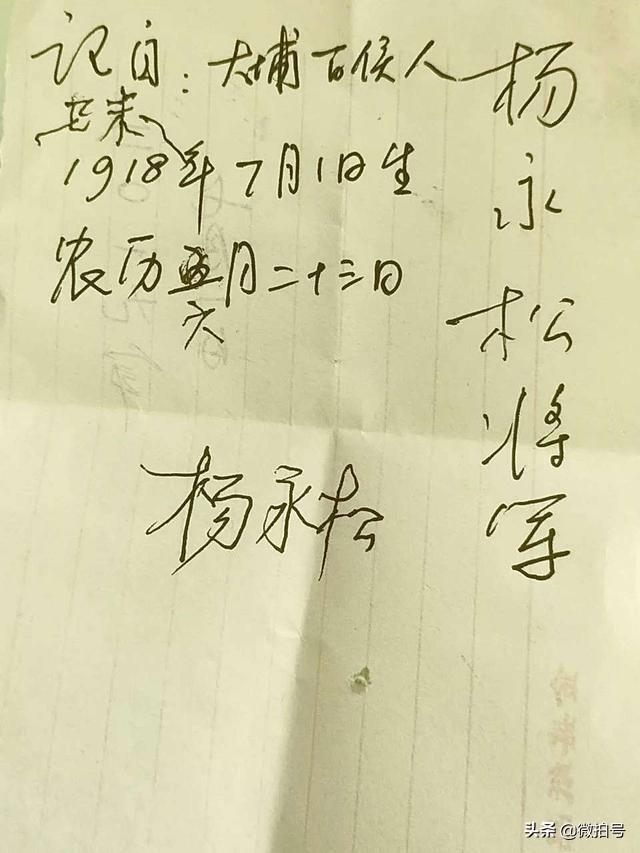 记自：大埔百侯人
1918年7月1日生
农历五月二十三日
六
杨永松
杨永松将军
头条 @微拍号